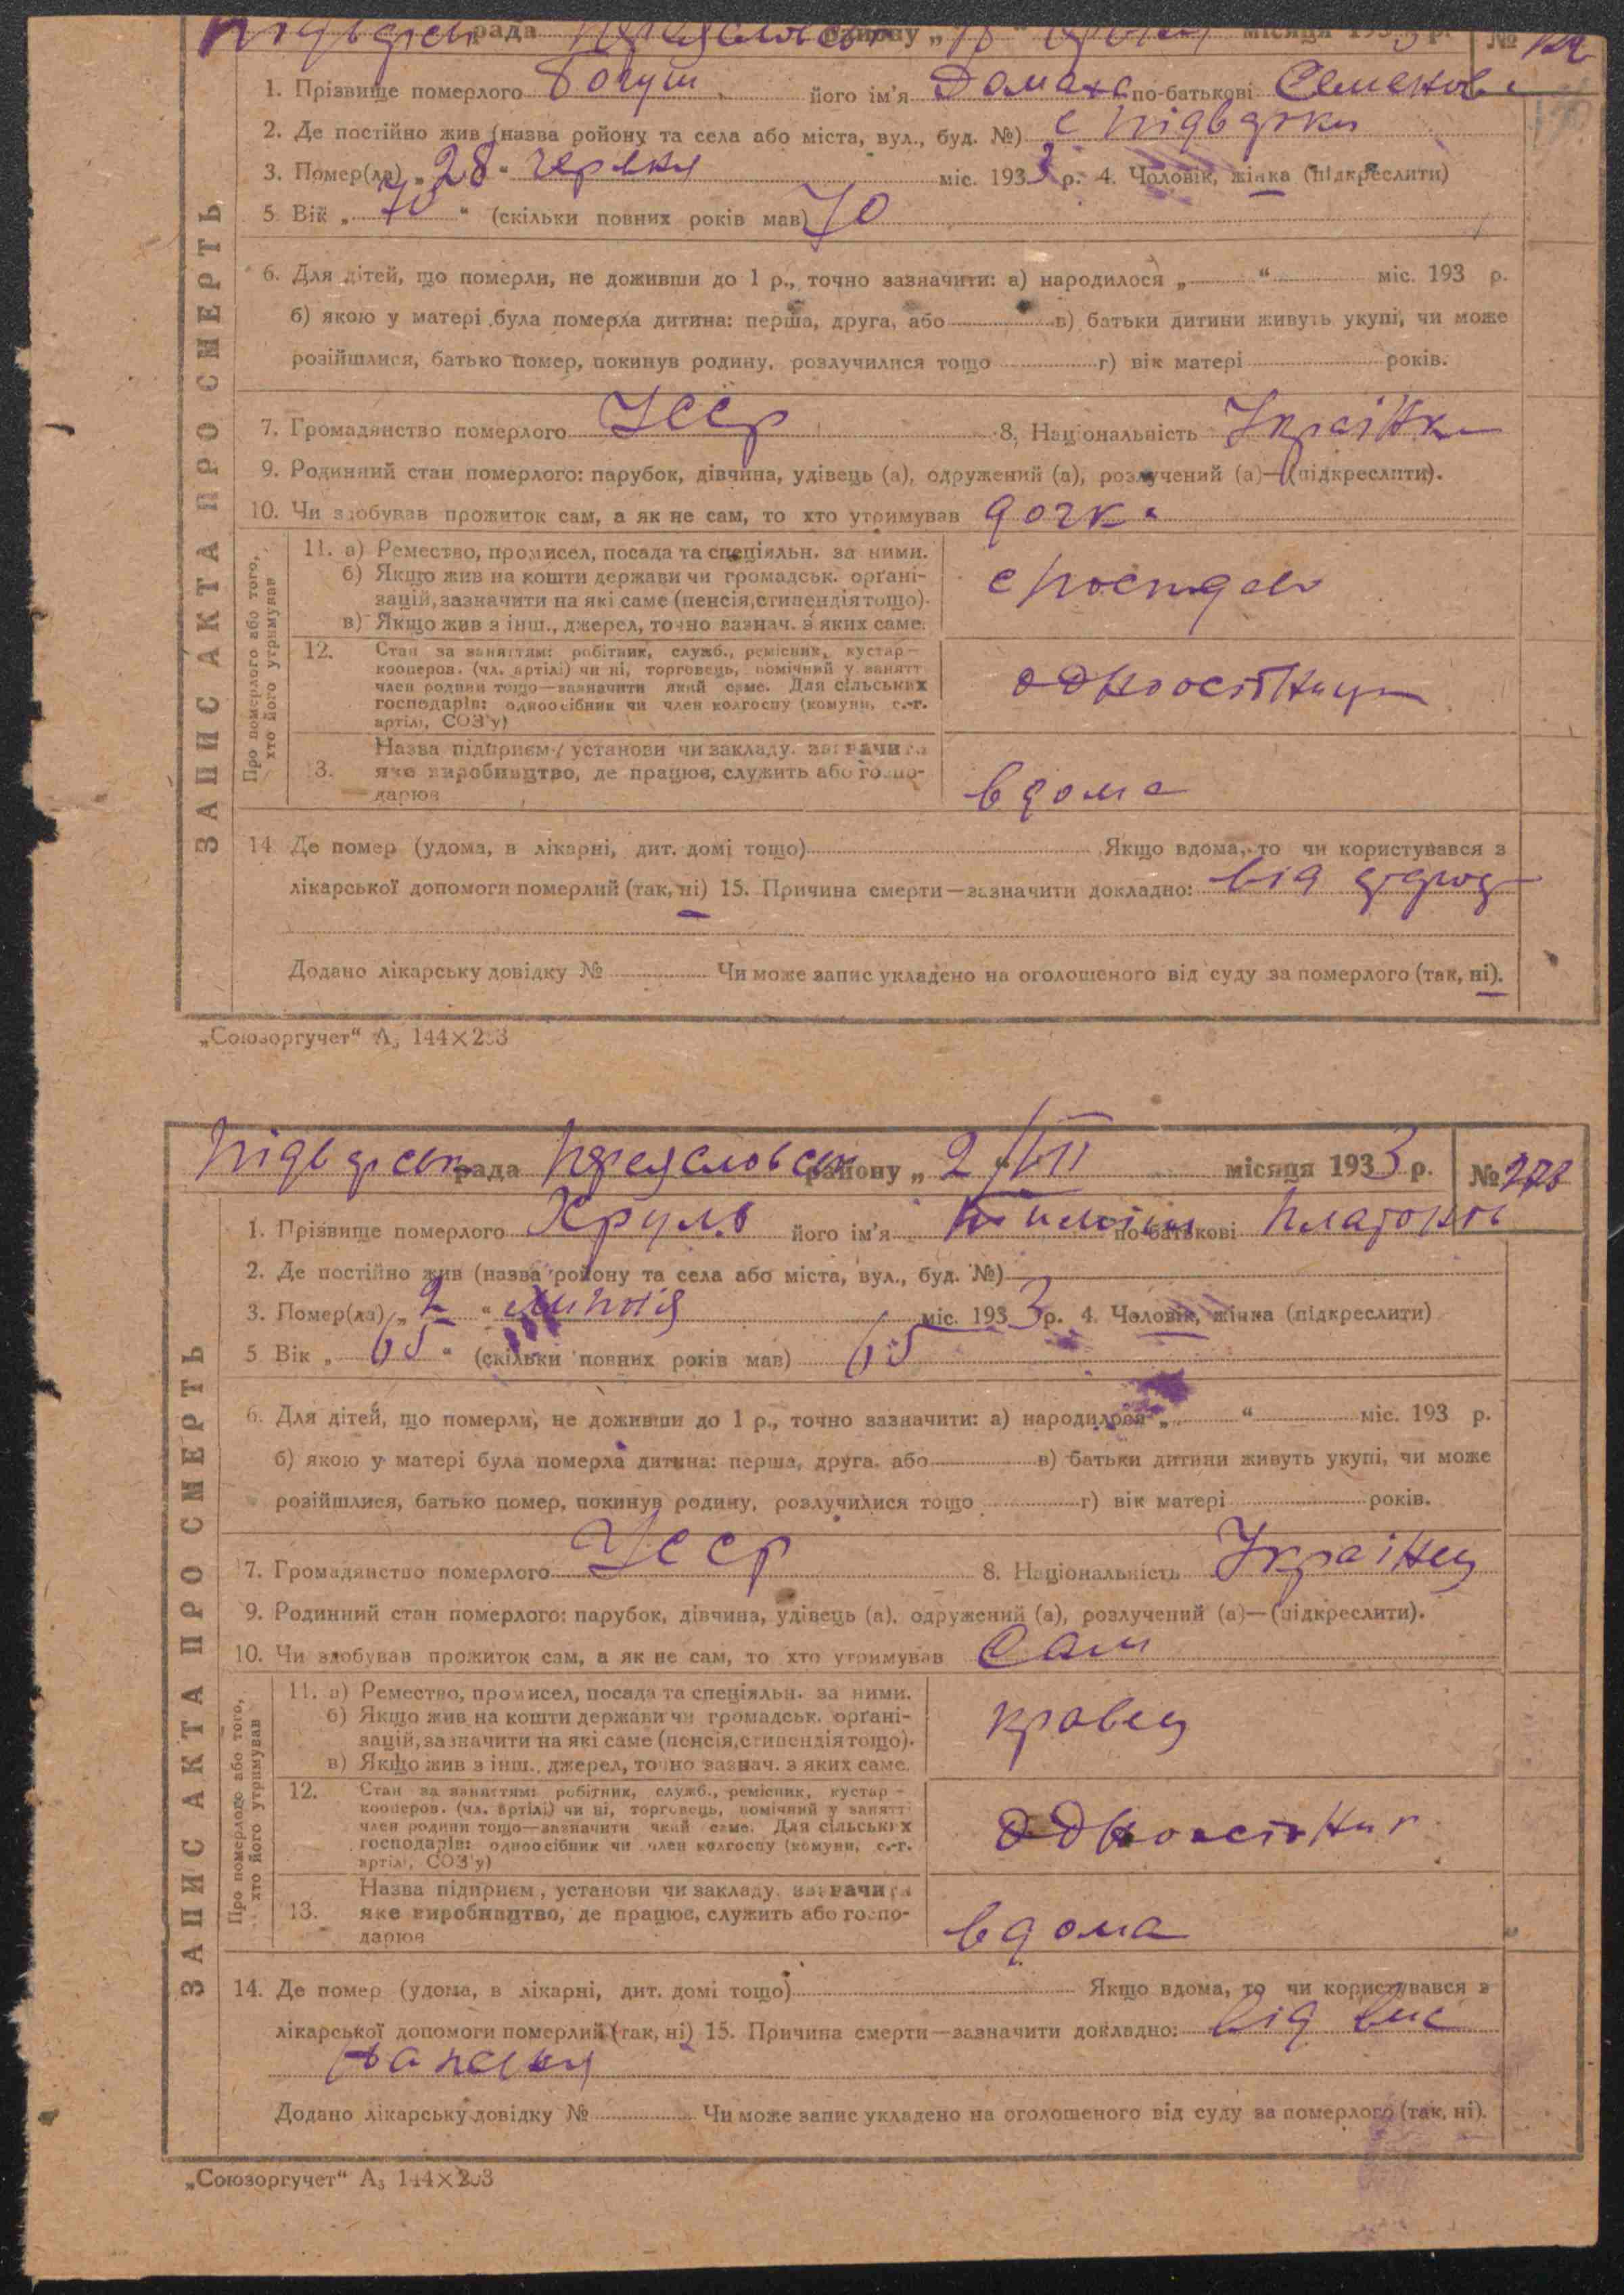 рада району „ місяця 193 3 р. №
1. Прізвище померлого Богуш його ім'я Домаха по-батькові Семенов
2. Де постійно жив (назва ройону та села або міста, вул., буд. №) с Підварки
3. Помер(ла) „28“ червня міс. 1933 р. 4. Чоловік, жінка (підкреслити)
5 Вік „70“ (скільки повних років мав) 70
6. Для дітей, що померли, не доживши до 1 р., точно зазначити: а) народилося „ “ міс. 193 р.
б) якою у матері була померла дитина: перша, друга, або в) батьки дитини живуть укупі, чи може
розійшлися, батько помер, покинув родину, розлучилися тощо г) вік матері років.
7. Громадянство померлого УССР 8. Національність Українка
9. Родинний стан померлого: парубок, дівчина, удівець (а), одружений (а), розлучений (а)—(підкреслити).
10. Чи здобував прожиток сам, а як не сам, то хто утримував дочка
11. а) Ремество, промисел, посада та спеціяльн. за ними.
б) Якщо жив на кошти держави чи громадськ. орґані-
зацій, зазначити на які саме (пенсія, стипендія тощо).
в) Якщо жив з інш., джерел, точно зазнач. з яких саме.
12. Стан за заняттям: робітник, служб., ремісник, кустар—
кооперов. (чл. артілі) чи ні, торговець, помічний у занятт
член родини тощо—зазначити який саме. Для сільських
господарів: одноосібник чи член колгоспу (комуни, с.-г.
артілі, СОЗ'у)
одноосібниця
Назва підприєм., установи чи закладу. зазначити
13. яке виробництво, де працює, служить або госпо-
дарює
вдома
14 Де помер (удома, в лікарні, дит. домі тощо) Якщо вдома, то чи користувався з
лікарської допомоги померлий (так, ні) 15. Причина смерти—зазначити докладно: від
Додано лікарську довідку № Чи може запис укладено на оголошеного від суду за померлого (так, ні).
ЗАПИС АКТА ПРО СМЕРТЬ
Про померлого або того,
хто його утримував
„Союзоргучет“ А₅ 144×203
Підварськ рада Переяславськ району „2 /VII місяця 1933 р. № 278
1. Прізвище померлого Хруль його ім'я по-батькові Платонов
2. Де постійно жив (назва ройону та села або міста, вул., буд. №)
3. Помер(ла) „2“ липня міс. 1933 р. 4. Чоловік, жінка (підкреслити)
5 Вік „65“ (скільки повних років мав) 65
6. Для дітей, що померли, не доживши до 1 р., точно зазначити: а) народилося „ “ міс. 193 р.
б) якою у матері була померла дитина: перша, друга, або в) батьки дитини живуть укупі, чи може
розійшлися, батько помер, покинув родину, розлучилися тощо г) вік матері років.
7. Громадянство померлого УССР 8. Національність Українец
9. Родинний стан померлого: парубок, дівчина, удівець (а), одружений (а), розлучений (а)—(підкреслити).
10. Чи здобував прожиток сам, а як не сам, то хто утримував Сам
11. а) Ремество, промисел, посада та спеціяльн. за ними.
б) Якщо жив на кошти держави чи громадськ. орґані-
зацій, зазначити на які саме (пенсія, стипендія тощо).
в) Якщо жив з інш., джерел, точно зазнач. з яких саме.
кравец
12. Стан за заняттям: робітник, служб., ремісник, кустар—
кооперов. (чл. артілі) чи ні, торговець, помічний у занятт
член родини тощо—зазначити який саме. Для сільських
господарів: одноосібник чи член колгоспу (комуни, с.-г.
артілі, СОЗ'у)
одноосібник
Назва підприєм., установи чи закладу. зазначити
13. яке виробництво, де працює, служить або госпо-
дарює
вдома
14. Де помер (удома, в лікарні, дит. домі тощо) Якщо вдома, то чи користувався з
лікарської допомоги померлий (так, ні) 15. Причина смерти—зазначити докладно: від вис
Додано лікарську довідку № Чи може запис укладено на оголошеного від суду за померлого (так, ні).
ЗАПИС АКТА ПРО СМЕРТЬ
Про померлого або того,
хто його утримував
„Союзоргучет“ А₅ 144×203